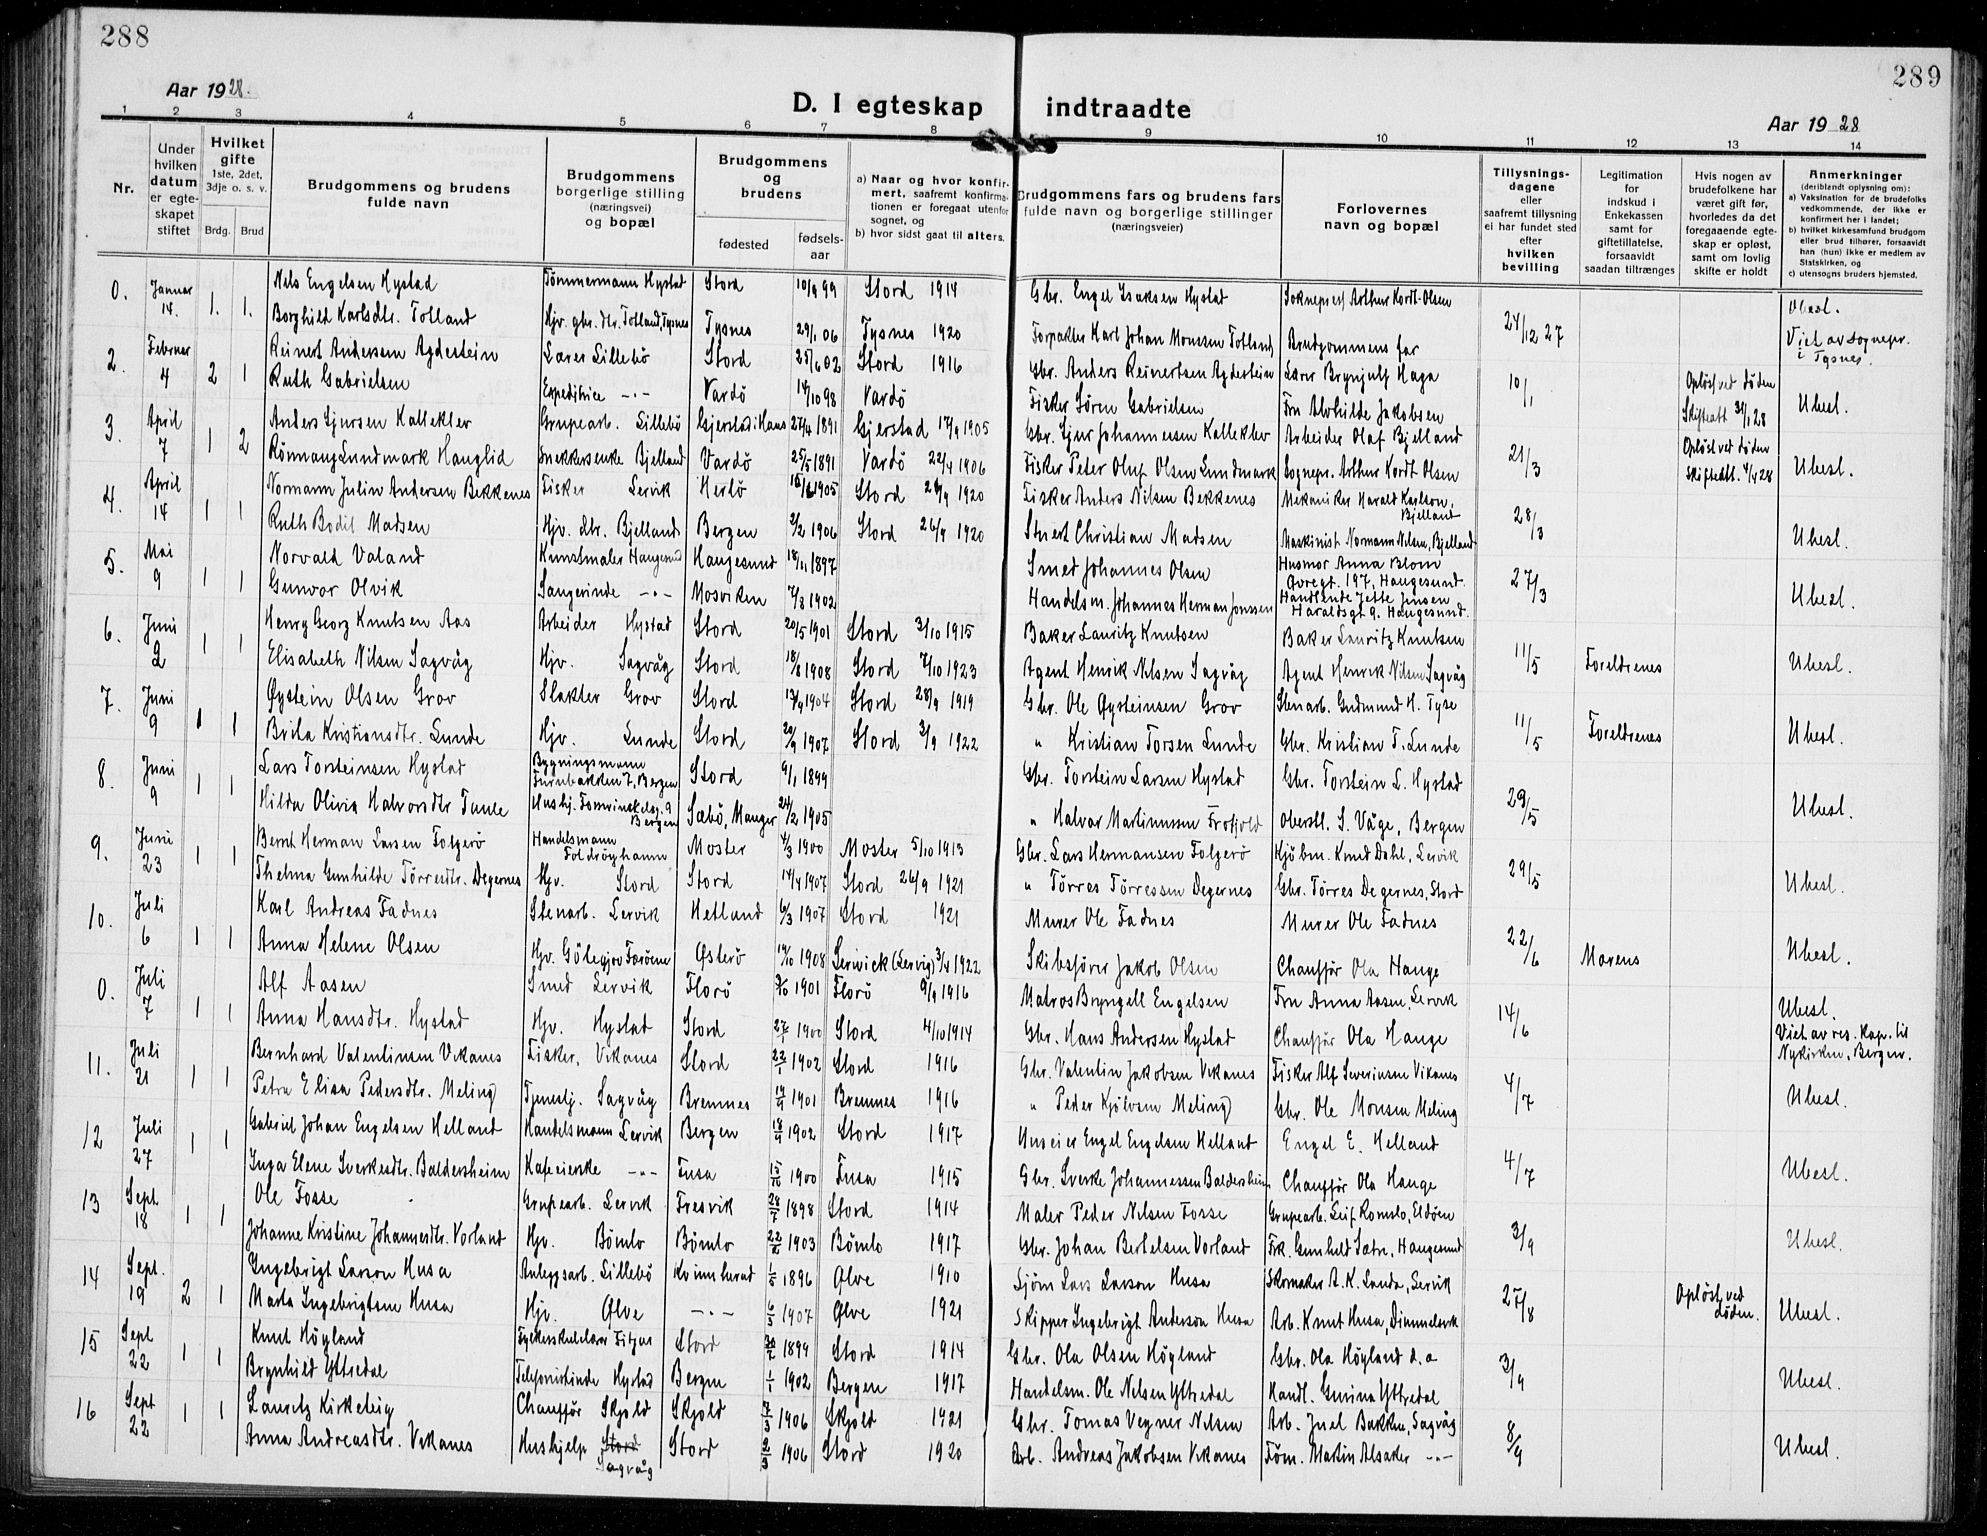 288
289
Aar 1928.
D. I egteskap indtraadte
Aar 1928
1 2 3 4 5 6 7 8 9 10 11 12 13 14
Nr.
Under hvilken datum er egteskapet stiftet
Hvilket gifte 1ste, 2det, 3dje o. s. v.
Brdg. Brud
Brudgommens og brudens fulde navn
Brudgommens borgerlige stilling (næringsvei) og bopæl
Brudgommens og brudens
fødested
fødselsaar
a) Naar og hvor konfirmert, saafremt konfirmationen er foregaat utenfor sognet, og
b) hvor sidst gaat til alters.
Brudgommens fars og brudens fars fulde navn og borgerlige stillinger (næringsveier)
Forlovernes navn og bopæl
Tillysningsdagene eller saafremt tillysning ei har fundet sted efter hvilken bevilling
Legitimation for indskud i Enkekassen samt for giftetillatelse, forsaavidt saadan tiltrænges
Hvis nogen av brudefolkene har været gift før, hvorledes da det foregaaende egteskap er opløst, samt om lovlig skifte er holdt
Anmerkninger (deriblandt oplysning om):
a) Vaksination for de brudefolks vedkommende, der ikke er konfirmert her i landet;
b) hvilket kirkesamfund brudgom eller brud tilhører, forsaavidt han (hun) ikke er medlem av Statskirken, og
c) utensogns bruders hjemsted.
0. Januar 14. 1. 1. Nels Engelsen Hystad Tømmermann Hystad Stord 10/9 99 Stord 1914 Gbr. Engel Isaksen Hystad Sokneprest Arthur Kordt-Olsen 24/12 27 Ubesl.
Borghild Karlsdtr. Tolland Hjv. gbr. dtr. Tolland, Tysnes Tysnes 29/1 06 Tysnes 1920 Forpakter Karl Johan Monssen Tolland Brudgommens far Viet av sognepr. i Tysnes.
2. Februar 4 2 1 Reinert Andersen Agdestein Lærer Lillebö Stord 25/6 02 Stord 1916 Gbr. Anders Reinertsen Agdestein Lærer Brynjulf Haga 10/1 Opløst ved døden Skifteatt 31/1 28 Ubesl.
Ruth Gabrielsen Expeditrice -"- Vardö 14/10 98 Vardö Fisker Sören Gabrielsen Fru Alvhilde Jakobsen
3. April 7 1 2 Anders Gjursen Kallekler Grupearb. Lillebö Gjerstad i Haus 27/4 1891 Gjerstad 17/9 1905 Gbr. Gjur Johannessen Kallekler Arbeider Olaf Bjelland 21/3 Opløst ved døden Skifteatt. 4/4 28 Ubesl.
Rönnaug Lundmark Hauglid Snekkerenke Bjelland Vardö 25/5 1891 Vardö 22/4 1906 Fisker Peter Oluf Olsen Lundmark Sognepr. Arthur Kordt Olsen
4. April 14 1 1 Normann Julin Andersen Bekkenes Fisker Lervik Herlö 16/6 1905 Stord 26/9 1920 Fisker Anders Nilsen Bekkenes Mekaniker Harald Karlson, Bjelland 28/3 Ubesl.
Ruth Bodil Madsen Hjv. dtr. Bjelland Bergen 2/2 1906 Stord 26/9 1920 Stuert Christian Madsen Maskinist Normann Nilsen, Bjelland
5. Mai 9 1 1 Norvald Valand Kunstmaler Haugesund Haugesund 18/11 1897 Smed Johannes Olsen Husmor Anna Blom Øvregt. 197, Haugesund. 27/3 Ubesl.
Gunvor Olvik Sangerinde -"- Mosviken 7/8 1902 Handelsm. Johannes Herman Jonssen Handlende Jette Jensen Haraldsgt 9. Haugesund.
6. Juni 2 1 1 Henry Georg Knutsen Aas Arbeider Hystad Stord 20/5 1901 Stord 3/10 1915 Baker Lauritz Knutsen Baker Lauritz Knutsen 11/5 Foreldrenes Ubesl.
Elisabeth Nilsen Sagvåg Hjv. Sagvåg Stord 18/8 1908 Stord 7/10 1923 Agent Henrik Nilsen Sagvåg Agent Henrik Nilsen Sagvåg
7. Juni 9 1 1 Øystein Olsen Grov Slakter Grov Stord 13/9 1904 Stord 28/9 1919 Gbr. Ole Øysteinsen Grov Stenarb. Gudmund H. Tyse 11/5 Foreldrenes Ubesl.
Brita Kristiansdtr. Lunde Hjv. Lunde Stord 20/9 1907 Stord 3/9 1922 " Kristian Torsen Lunde Gbr. Kristian T. Lunde
8. Juni 9 1 1 Lars Torsteinsen Hystad Bygningsmann Furubakken 7, Bergen Stord 9/1 1899 Gbr. Torstein Larsen Hystad Gbr. Torstein L. Hystad 29/5 Ubesl.
Hilda Olivia Halvorsdtr Tunle Bergen Sæbö, Manger 24/2 1905 " Halvar Martinussen Oberstl. S. Våge, Bergen
9. Juni 23 1 1 Bernt Herman Larsen Folgerö Handelsmann Foldröyhamn Moster 4/3 1900 Moster 5/10 1913 Gbr. Lars Hermansen Folgerö Kjöbm. Knud Dahl, Lervik 29/5 Ubesl.
Thelma Gunhilde Törresdtr. Degernes Hjv. Stord Stord 14/4 1907 Stord 26/9 1921 " Törres Törressen Degernes Gbr. Törres Degernes, Stord
10. Juli 6 1 1 Karl Andreas Fadnes Stenarb. Lervik Hetland 6/3 1907 Stord 1921 Murer Ole Fadnes Murer Ole Fadnes 22/6 Morens Ubesl.
Anna Helene Olsen Hjv. Götegjov Færöerne Österö 14/10 1908 Lerwick (Lervig) 3/4 1922 Skibsförer Jakob Olsen Chauffør Ola Hauge
0. Juli 7 1 1 Alf Aasen Smed Lervik Florö 3/10 1901 Florö 9/9 1916 Matros Bryngell Engelsen Fru Anna Aasen, Lervik 14/6 Ubesl.
Anna Hansdtr. Hystad Hjv. Hystad Stord 27/1 1900 Stord 4/10 1914 Gbr. Hans Andersen Hystad Chauffør Ola Hauge Viet av res. kap. til Nykirken, Bergen.
11. Juli 21 1 1 Bernhard Valentinsen Vikanes Fisker, Vikanes Stord 22/1 1902 Stord 1916 Gbr. Valentin Jakobsen Vikanes Fisker Alf Severinsen Vikanes 4/7 Ubesl.
Petra Elisa Pedersdtr. Meling Tjenestj. Sagvåg Bremnes 17/9 1901 Bremnes 1916 " Peder Kjölvsen Meling Gbr. Ole Monsen Meling
12 Juli 27 1 1 Gabriel Johan Engelsen Helland Handelsmann Lervik Bergen 18/9 1902 Stord 1917 Huseier Engel Engelsen Helland Engel E. Helland 4/7 Ubesl.
Inga Elene Sverkesdtr. Baldersheim Kafeeierske -"- Fusa 15/10 1900 Fusa 1915 Gbr. Sverke Johannessen Baldersheim Chauffør Ola Hauge
13 Sept. 18 1 1 Ole Fosse Grupearb. Lervik Fresvik 28/7 1898 Stord 1914 Maler Peder Nilsen Fosse Grupearb. Leif Romslo, Eldöen 3/9 Ubesl.
Johanne Kristine Johannesdtr. Vorland Hjv. Bömlo Bömlo 22/6 1903 Bömlo 1917 Gbr. Johan Bertelsen Vorland Frk. Gunhild Sætre, Haugesund
14 Sept. 19 2 1 Ingebrigt Larson Husa Anleggsarb. Lillebö Kvinnherad 1/5 1896 Ølve 1910 Sjöm Lars Larson Husa Skomaker A. K. Landa, Lervik 27/8 Opløst ved døden. Ubesl.
Marta Ingebrigtsen Husa Hjv. Ølve -"- 6/5 1907 Ølve 1921 Skipper Ingebrigt Anderson Husa Arb. Knut Husa, Dimmelsvik
15 Sept 22 1 1 Knut Högland Fylkesskulelærer Fitjar Stord 30/7 1899 Stord 1914 Gbr. Ola Olsen Högland Gbr. Ola Högland d.a 3/9 Ubesl.
Brynhild Yttredal Telefonistinde Hystad Bergen 1/1 1902 Bergen 1917 Handelsm. Ole Nelsen Yttredal Handl. Gurina Yttredal
16 Sept 22 1 1 Lauritz Kirkeleig Chauffør Skjold Skjold 7/3 1906 Skjold 1921 Gbr. Tomas Vegner Nilsen Arb. Juel Bakken, Sagvåg 8/9 Ubesl.
Anna Andreasdtr. Vikanes Hushjelp Stord Sagvåg Stord 2/3 1906 Stord 1920 Arb. Andreas Jakobsen Vikanes Töm. Martin Alsaker -"-